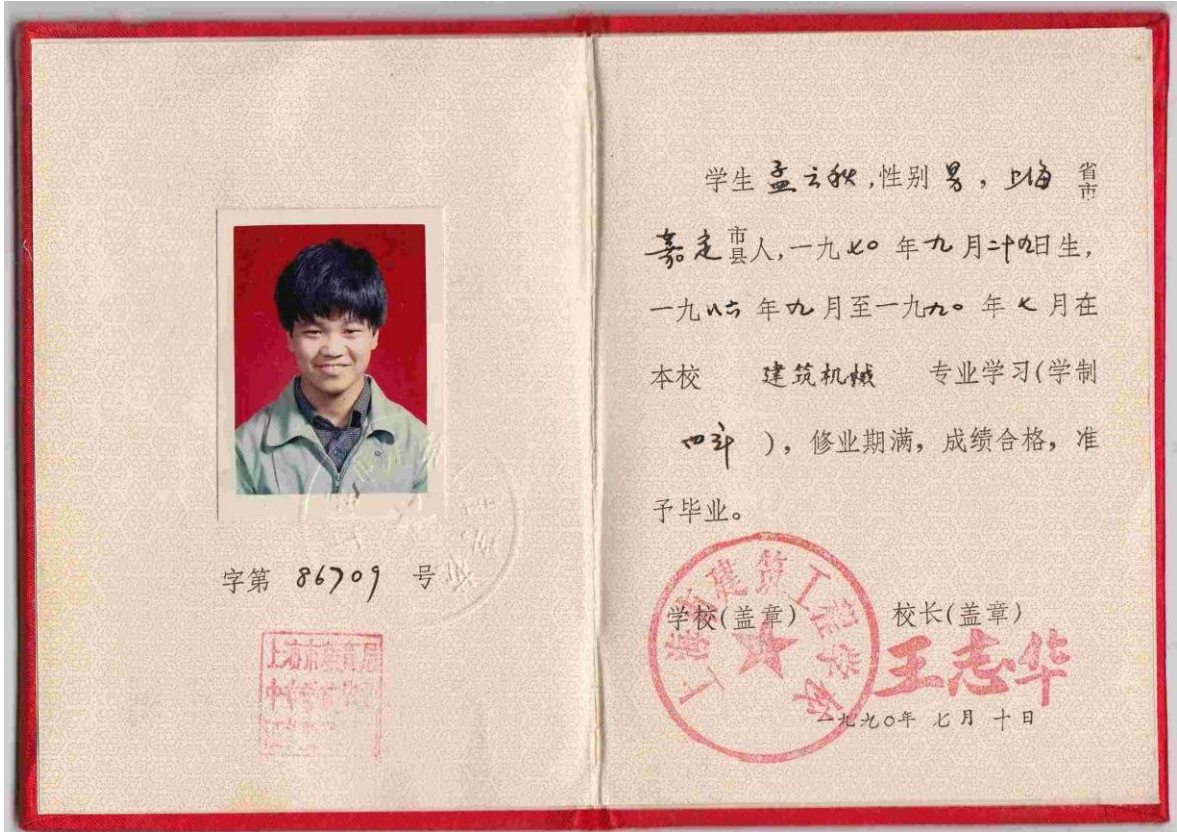 字第 86709 号
上海市教育局
学生 孟云秋,性别 男, 上海 省市
嘉定 市县人,一九七〇年九月二十九日生,
一九八六年九月至一九九〇年七月在
本校 建筑机械 专业学习(学制
四年 ), 修业期满, 成绩合格, 准
予毕业。
上海市建筑工程学校
学校(盖章) 校长(盖章)
王志华
一九九〇年 七月 十日